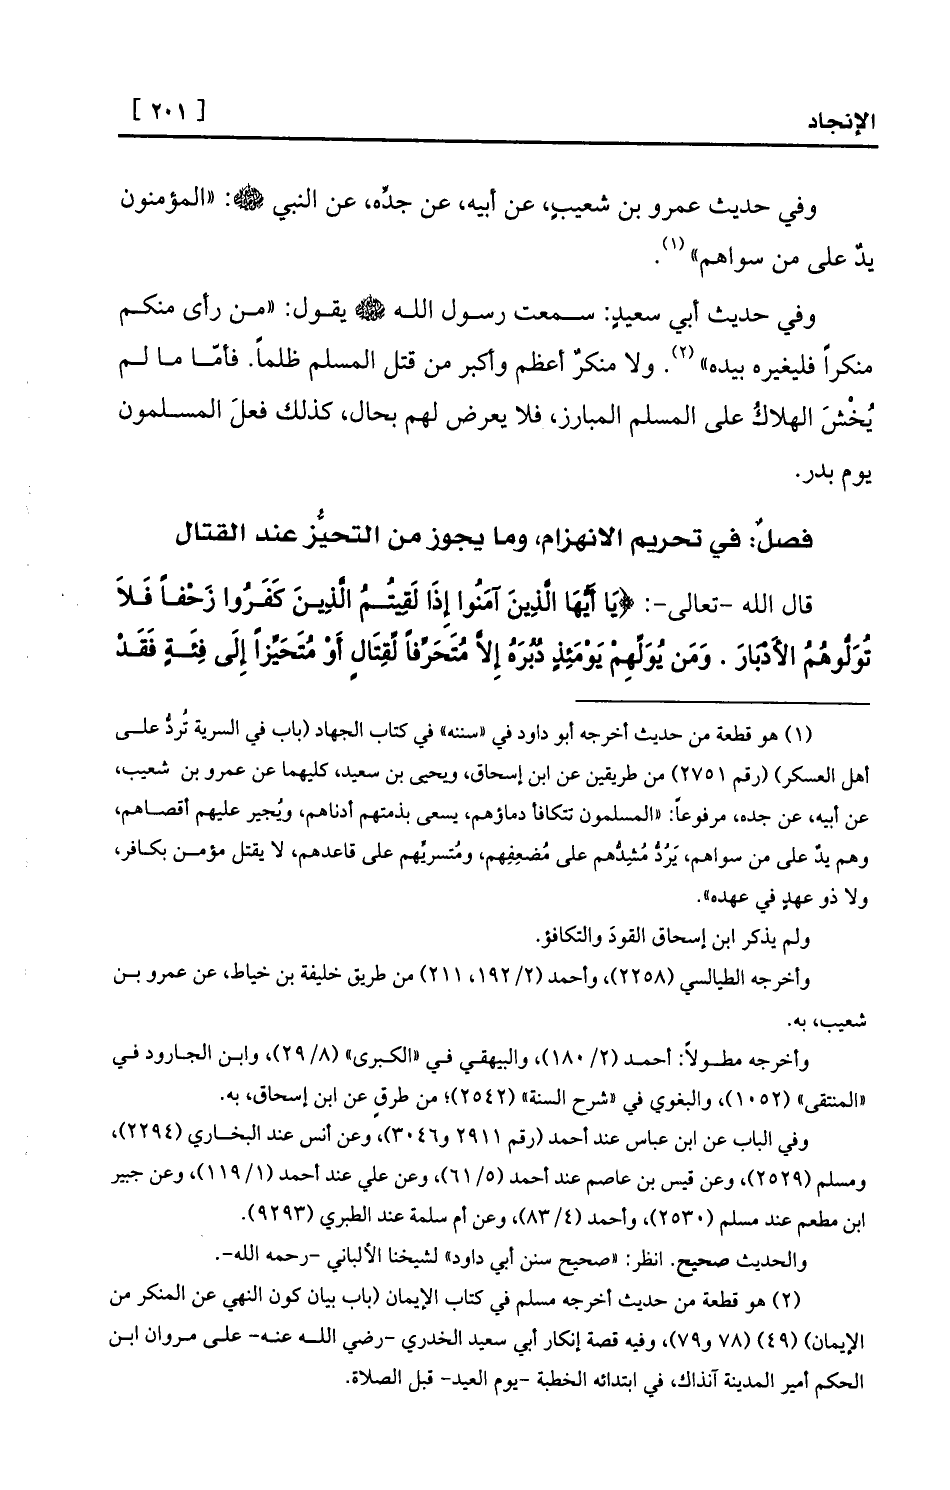 الإنجاد
[ ٢٠١ ]
وفي حديث عمرو بن شعيبٍ، عن أبيه، عن جدِّه، عن النبي ﷺ: «المؤمنون
يدٌ على من سواهم» (١).
وفي حديث أبي سعيدٍ: سمعت رسول الله ﷺ يقول: «من رأى منكم
منكراً فليغيره بيده» (٢). ولا منكرٌ أعظم وأكبر من قتل المسلم ظلماً. فأمّا ما لم
يُخْشَ الهلاكُ على المسلم المبارز، فلا يعرض لهم بحال، كذلك فعلَ المسلمون
يوم بدر.
فصلٌ: في تحريم الانهزام، وما يجوز من التحيُّز عند القتال
قال الله -تعالى-: ﴿يَا أَيُّهَا الَّذِينَ آمَنُوا إِذَا لَقِيتُمُ الَّذِينَ كَفَرُوا زَحْفاً فَلاَ
تُوَلُّوهُمُ الأَدْبَارَ . وَمَن يُوَلِّهِمْ يَوْمَئِذٍ دُبُرَهُ إِلاَّ مُتَحَرِّفاً لِّقِتَالٍ أَوْ مُتَحَيِّزاً إِلَى فِئَةٍ فَقَدْ
(١) هو قطعة من حديث أخرجه أبو داود في «سننه» في كتاب الجهاد (باب في السرية تُردُّ على
أهل العسكر) (رقم ٢٧٥١) من طريقين عن ابن إسحاق، ويحيى بن سعيد، كليهما عن عمرو بن شعيب،
عن أبيه، عن جده، مرفوعاً: «المسلمون تتكافأ دماؤهم، يسعى بذمتهم أدناهم، ويُجير عليهم أقصاهم،
وهم يدٌ على من سواهم، يَرُدُّ مُشِدُّهم على مُضعِفِهم، ومُتسريِّهم على قاعدهم، لا يقتل مؤمن بكافر،
ولا ذو عهدٍ في عهده».
ولم يذكر ابن إسحاق القودَ والتكافؤ.
وأخرجه الطيالسي (٢٢٥٨)، وأحمد (٢/ ١٩٢، ٢١١) من طريق خليفة بن خياط، عن عمرو بن
شعيب، به.
وأخرجه مطولاً: أحمد (٢/ ١٨٠)، والبيهقي في «الكبرى» (٨/ ٢٩)، وابن الجارود في
«المنتقى» (١٠٥٢)، والبغوي في «شرح السنة» (٢٥٤٢)؛ من طرقٍ عن ابن إسحاق، به.
وفي الباب عن ابن عباس عند أحمد (رقم ٢٩١١ و٣٠٤٦)، وعن أنس عند البخاري (٢٢٩٤)،
ومسلم (٢٥٢٩)، وعن قيس بن عاصم عند أحمد (٥/ ٦١)، وعن علي عند أحمد (١/ ١١٩)، وعن جبير
ابن مطعم عند مسلم (٢٥٣٠)، وأحمد (٤/ ٨٣)، وعن أم سلمة عند الطبري (٩٢٩٣).
والحديث صحيح. انظر: «صحيح سنن أبي داود» لشيخنا الألباني -رحمه الله-.
(٢) هو قطعة من حديث أخرجه مسلم في كتاب الإيمان (باب بيان كون النهي عن المنكر من
الإيمان) (٤٩) (٧٨ و٧٩)، وفيه قصة إنكار أبي سعيد الخدري -رضي الله عنه- على مروان ابن
الحكم أمير المدينة آنذاك، في ابتدائه الخطبة -يوم العيد- قبل الصلاة.